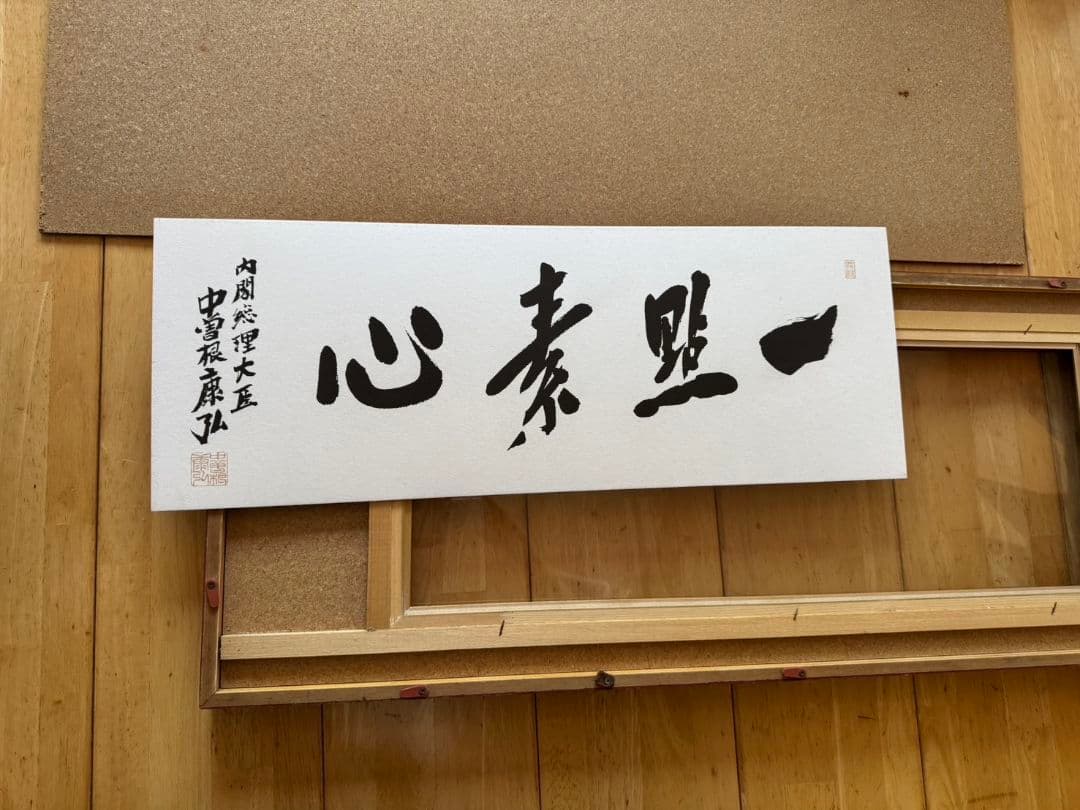 一點素心
内閣総理大臣
中曽根康弘